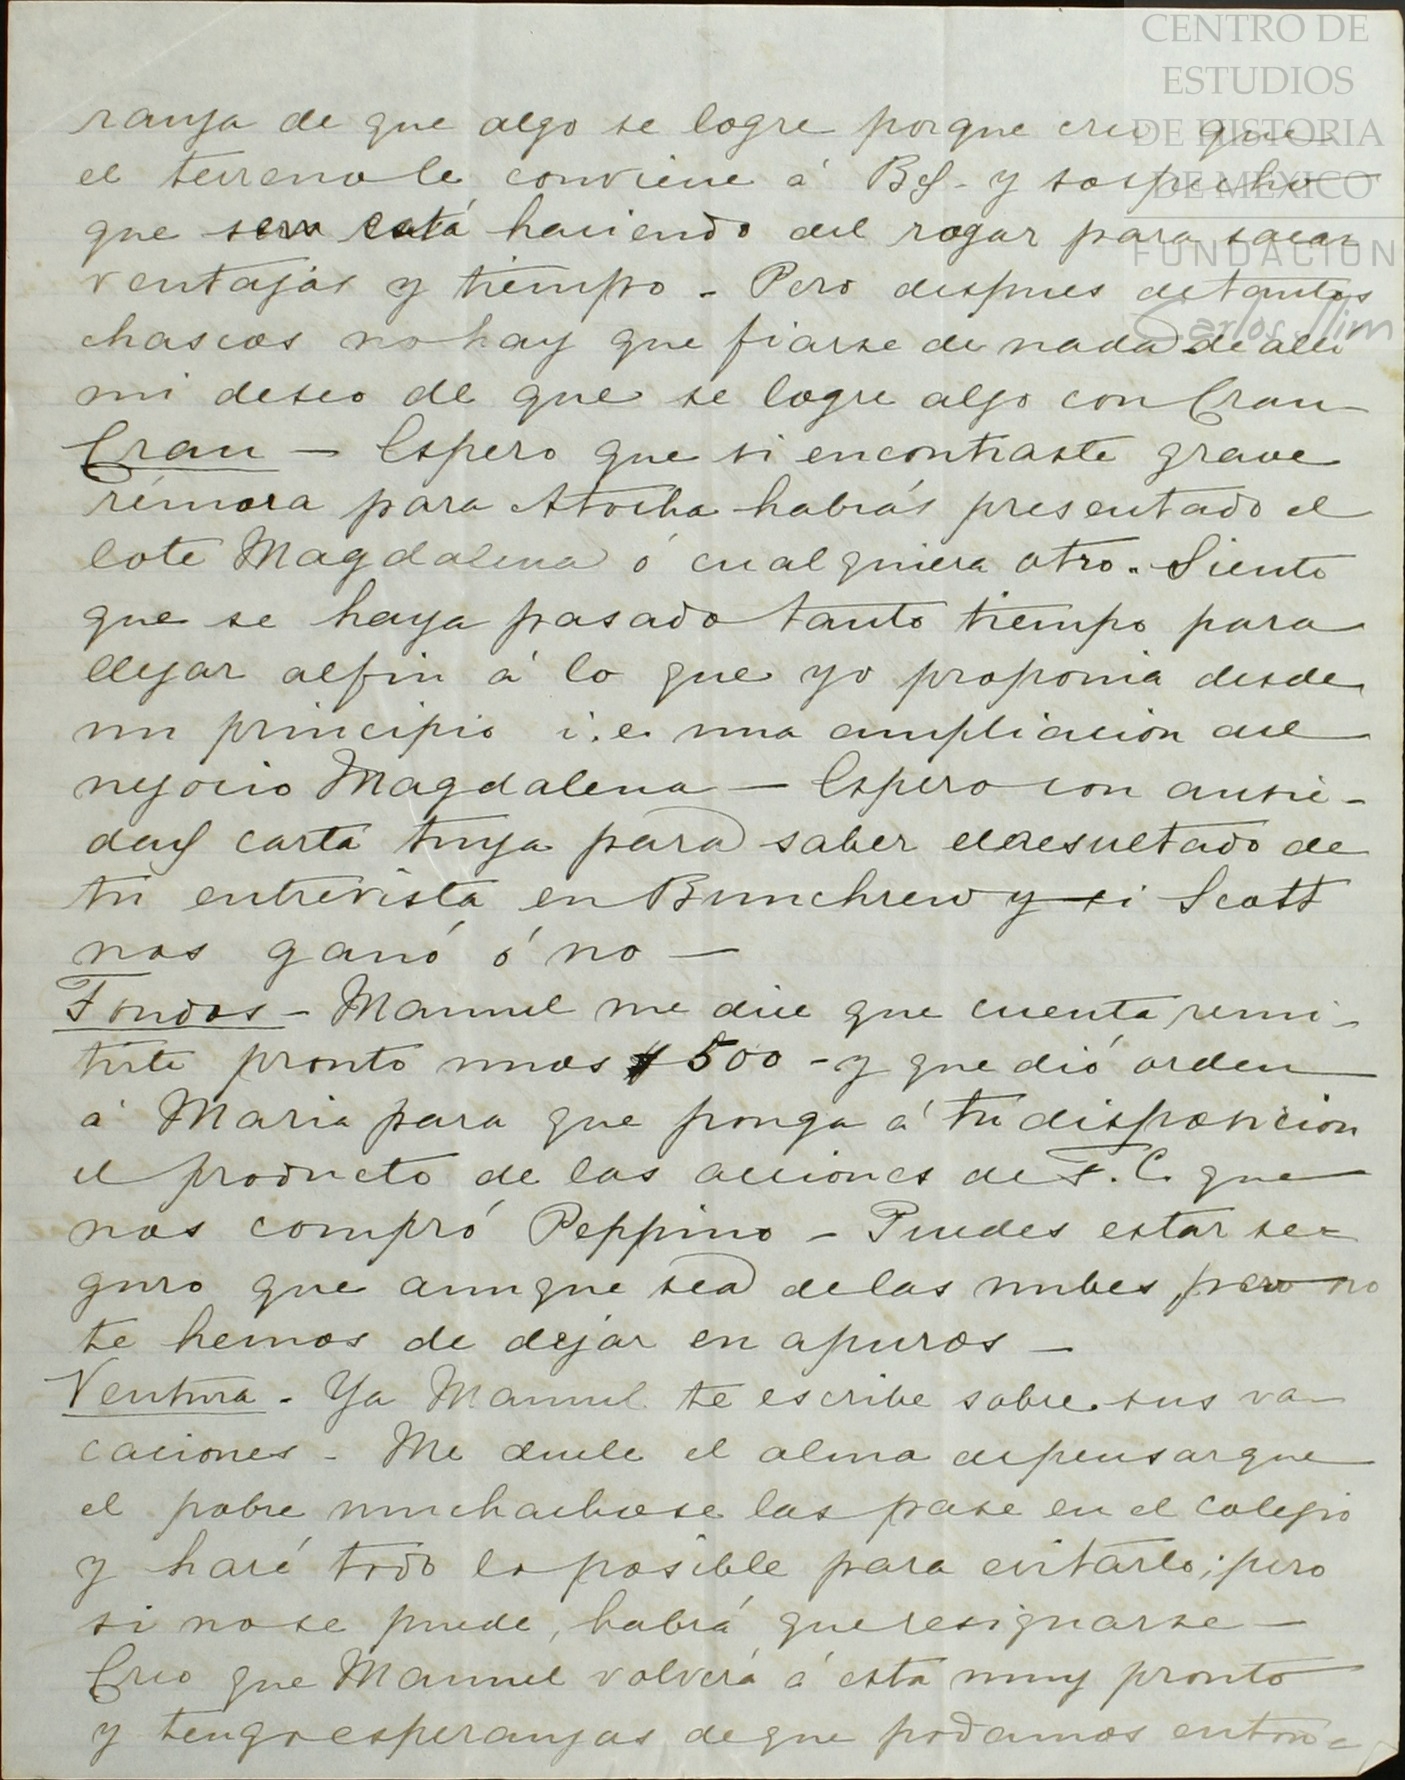 CENTRO DE
ESTUDIOS
DE HISTORIA
DE MÉXICO
FUNDACIÓN
Carlos Slim
ranza de que algo se logre porque creo que
el terreno le conviene á Bd. y sospecho
que se está haciendo del rogar para sacar
ventajas y tiempo - Pero despues de tantos
chascos no hay que fiarse de nada de alli
mi deseo de que se logre algo con Cran
Cran - Espero que si encontraste grave
rémora para Atocha habrás presentado el
lote Magdalena ó cualquiera otro. Siento
que se haya pasado tanto tiempo para
llegar al fin á lo que yo proponia desde
un principio i.e. una ampliacion del
negocio Magdalena - Espero con ansie-
dad carta tuya para saber el resultado de
tu entrevista en Bunchrew y si Scott
nos ganó ó no -
Fondos - Manuel me dice que cuenta remi-
tirte pronto unos $500 - y que dió orden
á Maria para que ponga á tu disposicion
el producto de las acciones de F.C. que
nos compró Peppino - Puedes estar se-
guro que aunque sea de las nubes, pero no
te hemos de dejar en apuros -
Ventura - Ya Manuel te escribe sobre sus va-
caciones - Me duele el alma de pensar que
el pobre muchacho se las pase en el colegio
y haré todo lo posible para evitarlo; pero
si no se puede, habrá que resignarse -
Creo que Manuel volverá á esta muy pronto
y tengo esperanzas de que podamos entonc